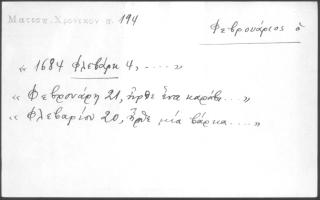 Ματεσι Χρονικον σ. 194
Φεβρουάριος ὁ
« 1684 Φλεβάρη 4, ..... »
« Φεβρουάρη 21, ἦρθε ἕνα καράβι.... »
« Φλεβαρίου 20, ἦρθε μία βάρκα.... »